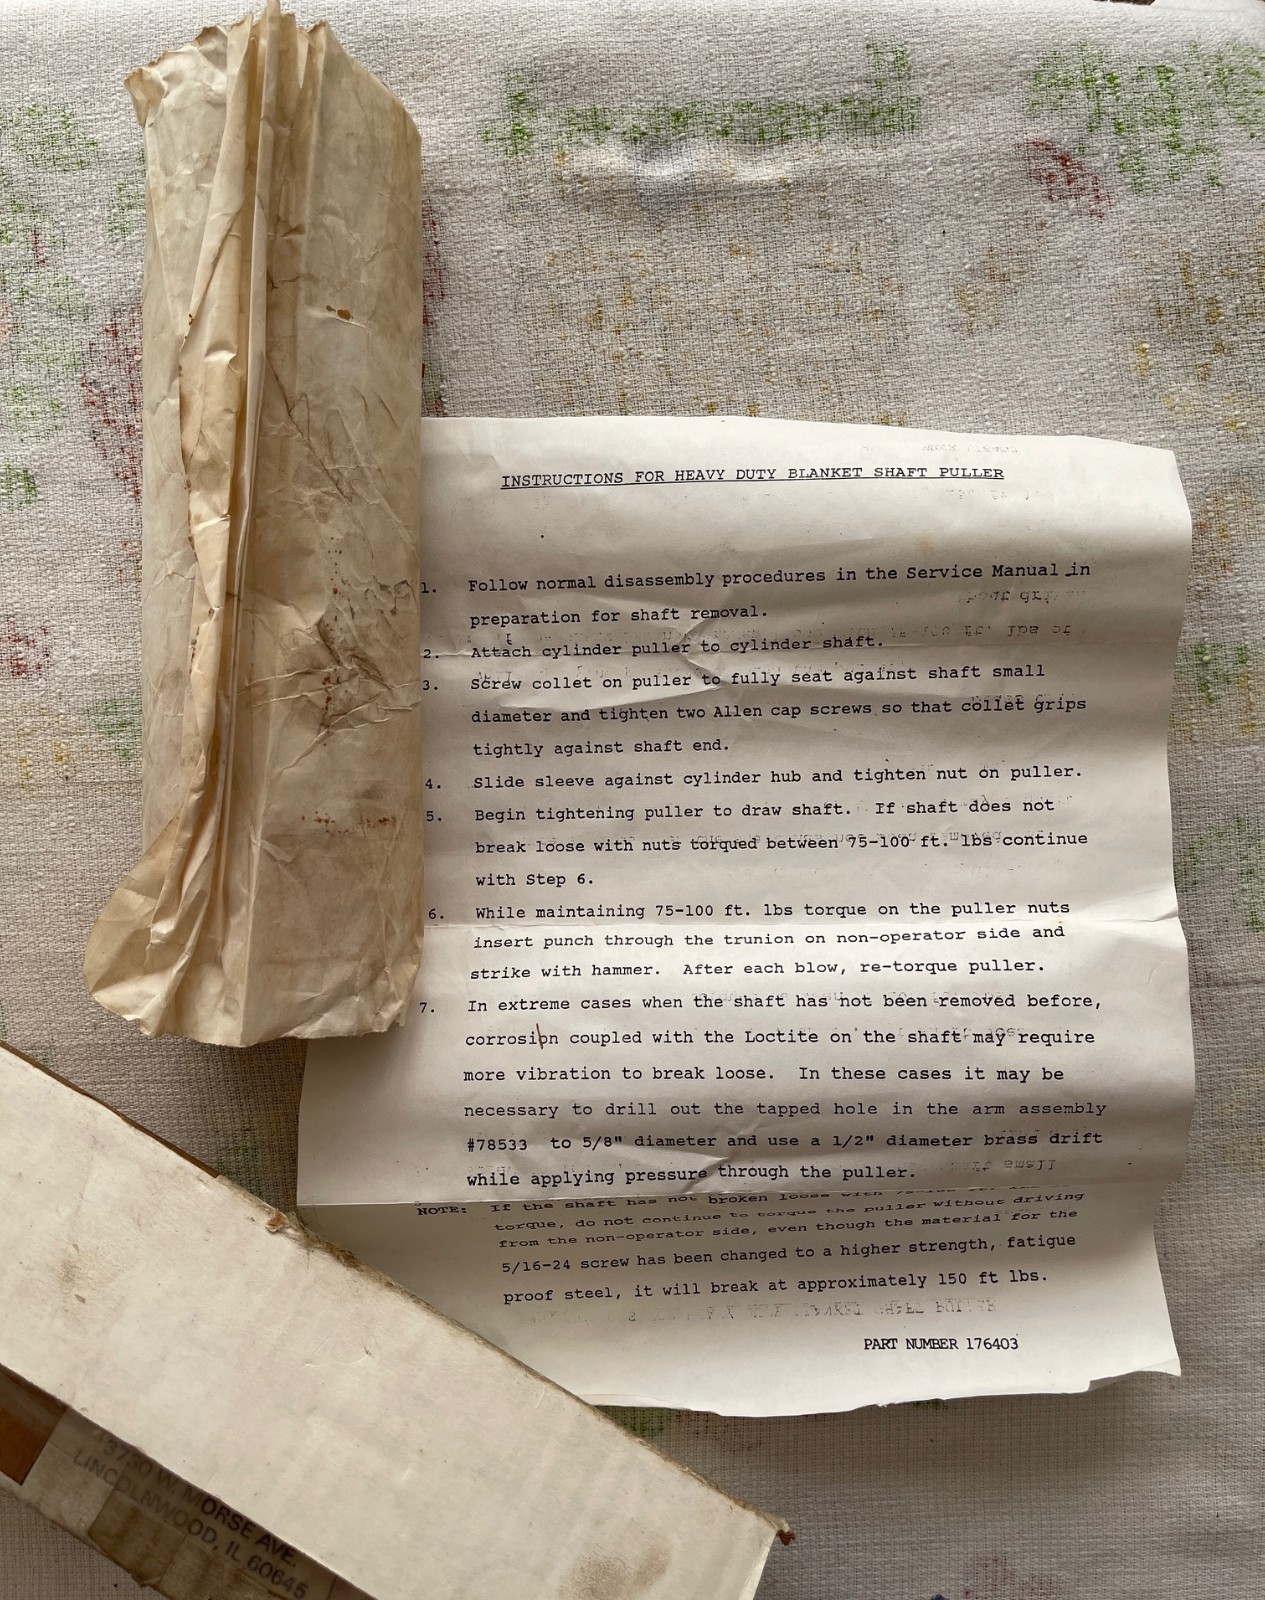 INSTRUCTIONS FOR HEAVY DUTY BLANKET SHAFT PULLER
1. Follow normal disassembly procedures in the Service Manual in
preparation for shaft removal.
2. Attach cylinder puller to cylinder shaft.
3. Screw collet on puller to fully seat against shaft small
diameter and tighten two Allen cap screws so that collet grips
tightly against shaft end.
4. Slide sleeve against cylinder hub and tighten nut on puller.
5. Begin tightening puller to draw shaft. If shaft does not
break loose with nuts torqued between 75-100 ft. lbs continue
with Step 6.
6. While maintaining 75-100 ft. lbs torque on the puller nuts
insert punch through the trunion on non-operator side and
strike with hammer. After each blow, re-torque puller.
7. In extreme cases when the shaft has not been removed before,
corrosion coupled with the Loctite on the shaft may require
more vibration to break loose. In these cases it may be
necessary to drill out the tapped hole in the arm assembly
#78533 to 5/8" diameter and use a 1/2" diameter brass drift
while applying pressure through the puller.
NOTE: If the shaft has not broken loose with
torque, do not continue to torque the puller without driving
from the non-operator side, even though the material for the
5/16-24 screw has been changed to a higher strength, fatigue
proof steel, it will break at approximately 150 ft lbs.
PART NUMBER 176403
3730 W. MORSE AVE.
LINCOLNWOOD, IL 60645